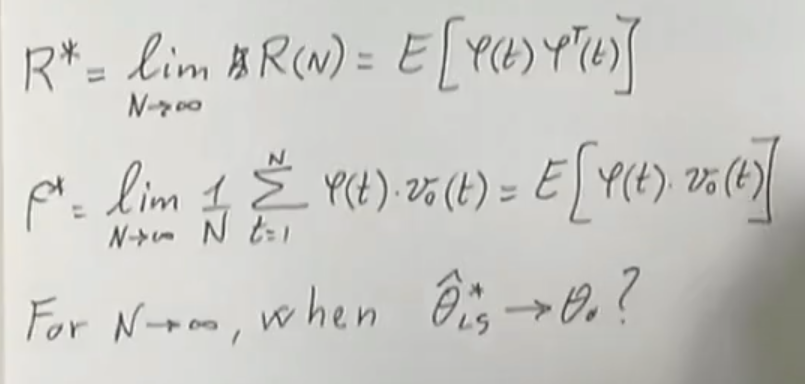 R* = lim N→∞ R(N) = E[φ(t) φᵀ(t)]
f* = lim N→∞ 1/N N Σ t=1 φ(t)·v₀(t) = E[φ(t)·v₀(t)]
For N→∞, when θ̂*LS → θ₀?